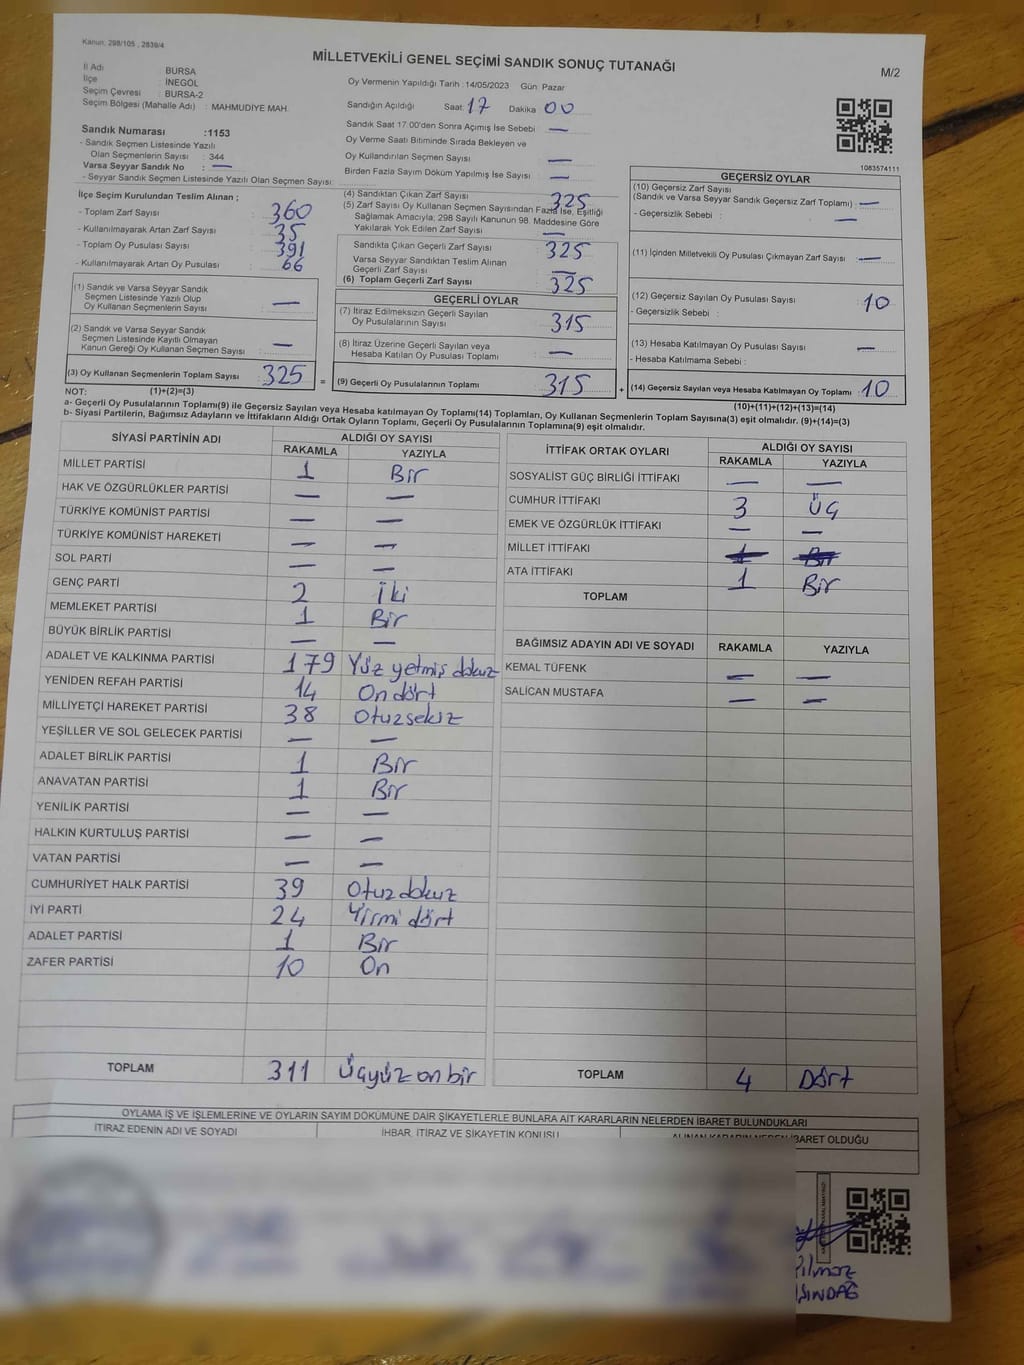 Kanun, 298/105 , 2839/4
MİLLETVEKİLİ GENEL SEÇİMİ SANDIK SONUÇ TUTANAĞI
M/2
İl Adı : BURSA
İlçe : İNEGÖL
Seçim Çevresi : BURSA-2
Seçim Bölgesi (Mahalle Adı) : MAHMUDİYE MAH.
Oy Vermenin Yapıldığı Tarih : 14/05/2023 Gün: Pazar
Sandığın Açıldığı Saat 17 Dakika 00
Sandık Saat 17:00'den Sonra Açımış İse Sebebi —
Oy Verme Saati Bitiminde Sırada Bekleyen ve
Oy Kullandırılan Seçmen Sayısı —
Birden Fazla Sayım Döküm Yapılmış İse Sayısı : —
Sandık Numarası :1153
- Sandık Seçmen Listesinde Yazılı
Olan Seçmenlerin Sayısı : 344
Varsa Seyyar Sandık No : —
- Seyyar Sandık Seçmen Listesinde Yazılı Olan Seçmen Sayısı:
1083574111
İlçe Seçim Kurulundan Teslim Alınan ;
- Toplam Zarf Sayısı 360
- Kullanılmayarak Artan Zarf Sayısı 35
- Toplam Oy Pusulası Sayısı 391
- Kullanılmayarak Artan Oy Pusulası 66
(1) Sandık ve Varsa Seyyar Sandık
Seçmen Listesinde Yazılı Olup
Oy Kullanan Seçmenlerin Sayısı —
(2) Sandık ve Varsa Seyyar Sandık
Seçmen Listesinde Kayıtlı Olmayan
Kanun Gereği Oy Kullanan Seçmen Sayısı —
(3) Oy Kullanan Seçmenlerin Toplam Sayısı 325
(1)+(2)=(3)
(4) Sandıktan Çıkan Zarf Sayısı 325
(5) Zarf Sayısı Oy Kullanan Seçmen Sayısından Fazla İse, Eşitliği
Sağlamak Amacıyla; 298 Sayılı Kanunun 98. Maddesine Göre
Yakılarak Yok Edilen Zarf Sayısı —
Sandıkta Çıkan Geçerli Zarf Sayısı 325
Varsa Seyyar Sandıktan Teslim Alınan
Geçerli Zarf Sayısı —
(6) Toplam Geçerli Zarf Sayısı 325
GEÇERLİ OYLAR
(7) İtiraz Edilmeksizin Geçerli Sayılan
Oy Pusulalarının Sayısı 315
(8) İtiraz Üzerine Geçerli Sayılan veya
Hesaba Katılan Oy Pusulası Toplamı —
= (9) Geçerli Oy Pusulalarının Toplamı 315
GEÇERSİZ OYLAR
(10) Geçersiz Zarf Sayısı
(Sandık ve Varsa Seyyar Sandık Geçersiz Zarf Toplamı) —
- Geçersizlik Sebebi : —
(11) İçinden Milletvekili Oy Pusulası Çıkmayan Zarf Sayısı —
(12) Geçersiz Sayılan Oy Pusulası Sayısı 10
- Geçersizlik Sebebi :
(13) Hesaba Katılmayan Oy Pusulası Sayısı —
- Hesaba Katılmama Sebebi :
+ (14) Geçersiz Sayılan veya Hesaba Katılmayan Oy Toplamı 10
(10)+(11)+(12)+(13)=(14)
NOT:
a- Geçerli Oy Pusulalarının Toplamı(9) ile Geçersiz Sayılan veya Hesaba katılmayan Oy Toplamı(14) Toplamları, Oy Kullanan Seçmenlerin Toplam Sayısına(3) eşit olmalıdır. (9)+(14)=(3)
b- Siyasi Partilerin, Bağımsız Adayların ve İttifakların Aldığı Ortak Oyların Toplamı, Geçerli Oy Pusulalarının Toplamına(9) eşit olmalıdır.
SİYASİ PARTİNİN ADI ALDIĞI OY SAYISI
RAKAMLA YAZIYLA
MİLLET PARTİSİ 1 Bir
HAK VE ÖZGÜRLÜKLER PARTİSİ — —
TÜRKİYE KOMÜNİST PARTİSİ — —
TÜRKİYE KOMÜNİST HAREKETİ — —
SOL PARTİ — —
GENÇ PARTİ 2 İki
MEMLEKET PARTİSİ 1 Bir
BÜYÜK BİRLİK PARTİSİ — —
ADALET VE KALKINMA PARTİSİ 179 Yüz yetmiş dokuz
YENİDEN REFAH PARTİSİ 14 On dört
MİLLİYETÇİ HAREKET PARTİSİ 38 Otuzsekiz
YEŞİLLER VE SOL GELECEK PARTİSİ — —
ADALET BİRLİK PARTİSİ 1 Bir
ANAVATAN PARTİSİ 1 Bir
YENİLİK PARTİSİ — —
HALKIN KURTULUŞ PARTİSİ — —
VATAN PARTİSİ — —
CUMHURİYET HALK PARTİSİ 39 Otuz dokuz
İYİ PARTİ 24 Yirmi dört
ADALET PARTİSİ 1 Bir
ZAFER PARTİSİ 10 On
TOPLAM 311 Üçyüz on bir
İTTİFAK ORTAK OYLARI ALDIĞI OY SAYISI
RAKAMLA YAZIYLA
SOSYALİST GÜÇ BİRLİĞİ İTTİFAKI — —
CUMHUR İTTİFAKI 3 Üç
EMEK VE ÖZGÜRLÜK İTTİFAKI — —
MİLLET İTTİFAKI 1 Bir
ATA İTTİFAKI 1 Bir
TOPLAM
BAĞIMSIZ ADAYIN ADI VE SOYADI RAKAMLA YAZIYLA
KEMAL TÜFENK — —
SALİCAN MUSTAFA — —
TOPLAM 4 Dört
OYLAMA İŞ VE İŞLEMLERİNE VE OYLARIN SAYIM DÖKÜMÜNE DAİR ŞİKAYETLERLE BUNLARA AİT KARARLARIN NELERDEN İBARET BULUNDUKLARI
İTİRAZ EDENİN ADI VE SOYADI İHBAR, İTİRAZ VE ŞİKAYETİN KONUSU ALINAN KARARIN NEDEN İBARET OLDUĞU